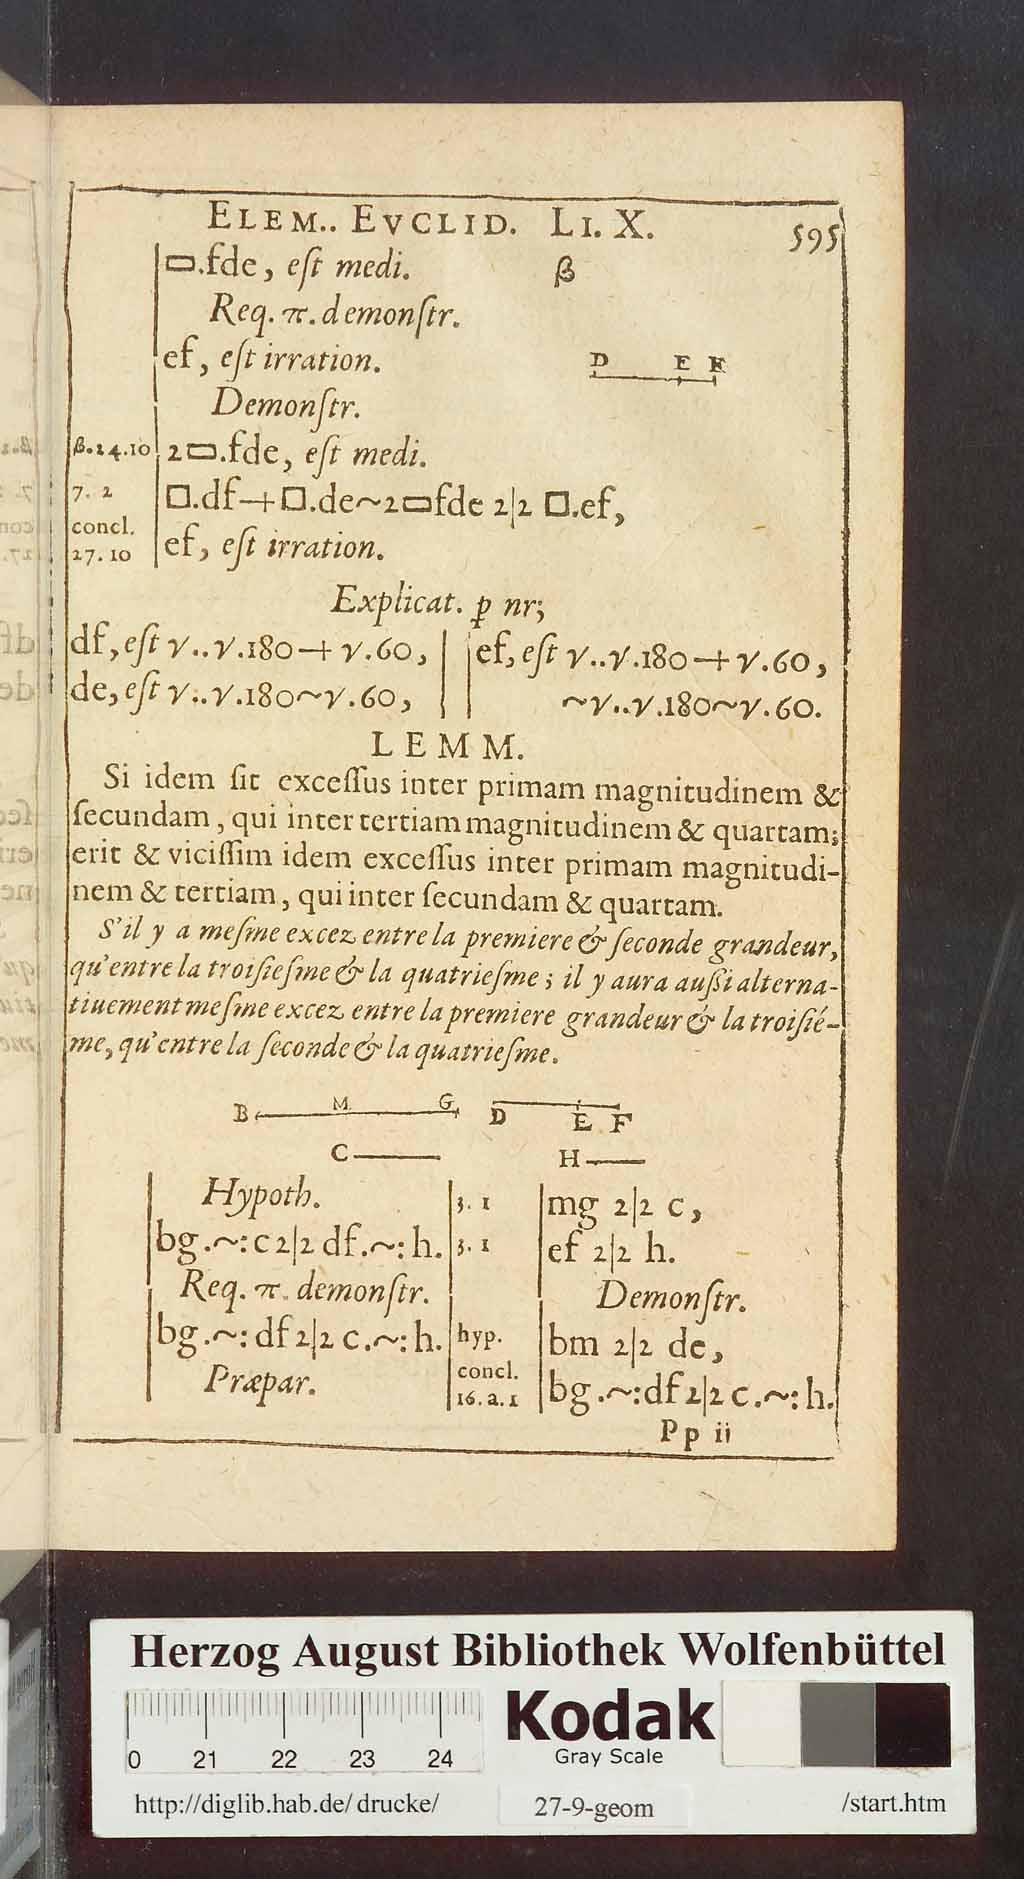 ELEM.. EVCLID. LI. X. 595
▭.fde, eſt medi. β
Req. π. demonſtr.
ef, eſt irration.
D E F
Demonſtr.
β.24.10 2▭.fde, eſt medi.
7. 2 □.df+□.de~2▭fde 2|2 □.ef,
concl.
27. 10 ef, eſt irration.
Explicat. ꝑ nr;
df, eſt √..√.180+√.60,
de, eſt √..√.180~√.60,
ef, eſt √..√.180+√.60,
~√..√.180~√.60.
LEMM.
Si idem ſit exceſſus inter primam magnitudinem &
ſecundam, qui inter tertiam magnitudinem & quartam;
erit & viciſſim idem exceſſus inter primam magnitudi-
nem & tertiam, qui inter ſecundam & quartam.
S'il y a meſme excez entre la premiere & ſeconde grandeur,
qu'entre la troiſieſme & la quatrieſme; il y aura auſſi alterna-
tiuement meſme excez entre la premiere grandeur & la troiſié-
me, qu'entre la ſeconde & la quatrieſme.
B M G D E F
C H
Hypoth.
bg.~:c 2|2 df.~:h.
Req. π. demonſtr.
bg.~:df 2|2 c.~:h.
Præpar.
3. 1 mg 2|2 c,
3. 1 ef 2|2 h.
Demonſtr.
hyp. bm 2|2 de,
concl.
16. a. 1 bg.~:df 2|2 c.~:h.
Pp ii
Herzog August Bibliothek Wolfenbüttel
Kodak
Gray Scale
0 21 22 23 24
http://diglib.hab.de/drucke/ 27-9-geom /start.htm